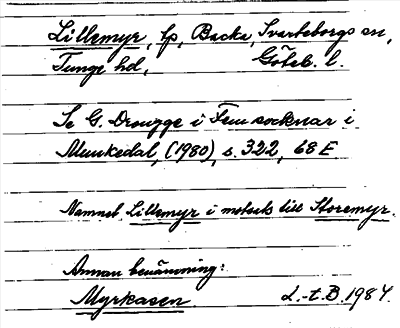 Lillemyr, lp, Backa, Svarteborgs sn,
Tunge hd, Göteb. l.
Se G. Drougge i Fem socknar i
Munkedal, (1980), s. 322, 68 E
Namnet Lillemyr i motsats till Storemyr.
Annan benämning:
Myrkasen L.-t. B. 1984.